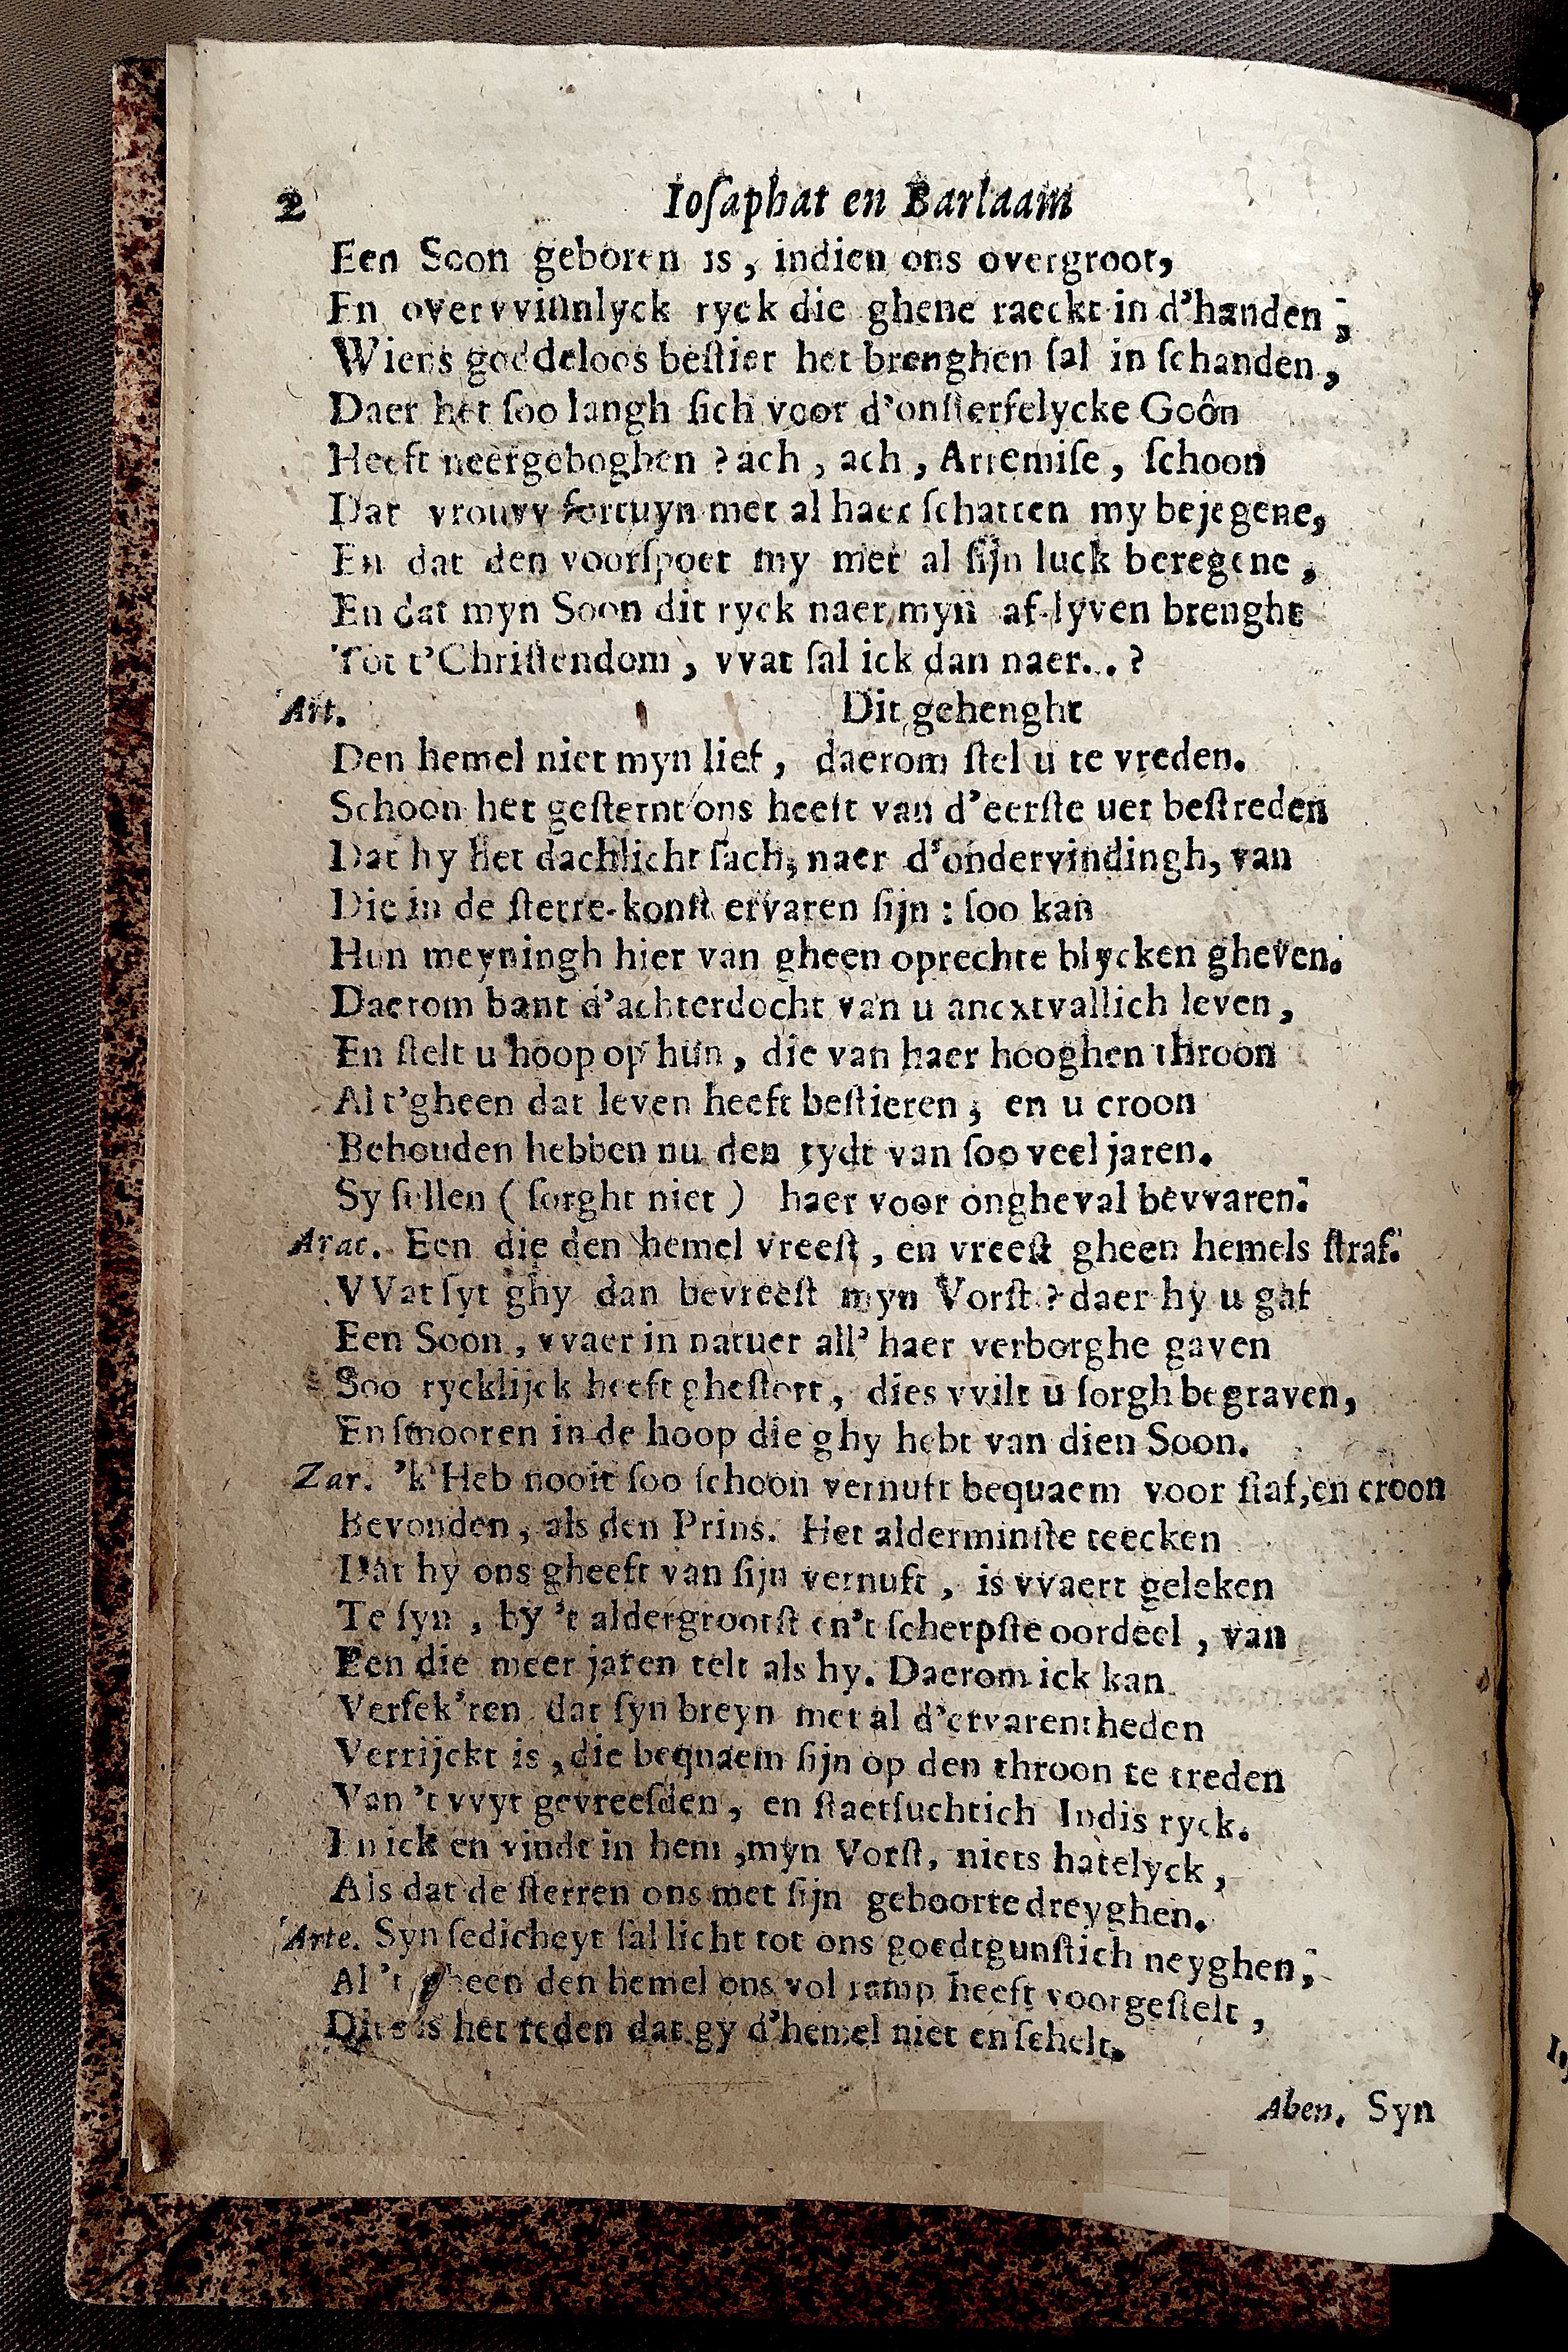 2 Iosaphat en Barlaam
Een Soon geboren is, indien ons overgroot,
En overvviunlyck ryck die ghene raeckt in d'handen;
Wiens goddeloos beſtier het brenghen ſal in ſchanden,
Daer het ſoo langh ſich voor d'onſterfelycke Goôn
Heeft neergeboghen ? ach, ach, Artemiſe, ſchoon
Dat vrouvv fortuyn met al haer ſchatten my bejegene,
En dat den voorſpoet my met al ſijn luck beregene,
En dat myn Soon dit ryck naer myn af-lyven brenght
Tot t'Chriſtendom, vvat ſal ick dan naer...?
Art. Dit gehenght
Den hemel niet myn lief, daerom ſtel u te vreden.
Schoon het geſternt ons heeft van d'eerſte uer beſtreden
Dat hy het dachlicht ſach, naer d'ondervindingh, van
Die in de ſterre-konſt ervaren ſijn : ſoo kan
Hun meyningh hier van gheen oprechte blycken gheven.
Daerom bant d'achterdocht van u ancxtvallich leven,
En ſtelt u hoop op hun, die van haer hooghen throon
Al t'gheen dat leven heeft beſtieren; en u croon
Behouden hebben nu den tydt van ſoo veel jaren.
Sy ſullen ( ſorght niet ) haer voor ongheval bevvaren.
Arac. Een die den hemel vreeſt, en vreeſt gheen hemels ſtraf.
VVat ſyt ghy dan bevreeſt myn Vorſt ? daer hy u gaf
Een Soon, vvaer in natuer all' haer verborghe gaven
Soo rycklijck heeft gheſtort, dies vvilt u ſorgh begraven,
En ſmooren in de hoop die ghy hebt van dien Soon.
Zar. 'k Heb nooit ſoo ſchoon vernuft bequaem voor ſtaf, en croon
Bevonden, als den Prins. Het alderminſte teecken
Dat hy ons gheeft van ſijn vernuft, is vvaert geleken
Te ſyn, by 't aldergrootſt en't ſcherpſte oordeel, van
Een die meer jaren telt als hy. Daerom ick kan
Verſek'ren dat ſyn breyn met al d'ervarentheden
Verrijckt is, die bequaem ſijn op den throon te treden
Van 't vvyt gevreeſden, en ſtaetſuchtich Indis ryck.
En ick en vindt in hem, myn Vorſt, niets hatelyck,
Als dat de ſterren ons met ſijn geboorte dreyghen.
Arte. Syn ſedicheyt ſal licht tot ons goedtgunſtich neyghen,
Al 't gheen den hemel ons vol ramp heeft voorgeſtelt,
Dits is het reden dat gy d'hemel niet en ſchelt.
Aben. Syn